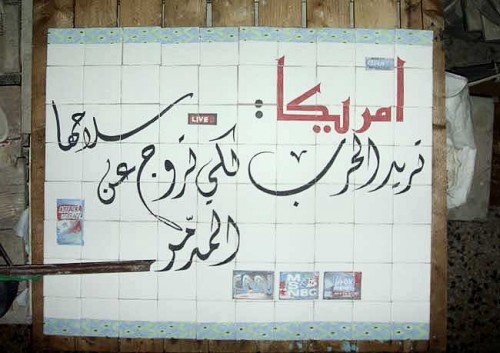 أمريكا :
تريد الحرب لكي تروج عن سلاحها
المدمّر
LIVE
MSNBC